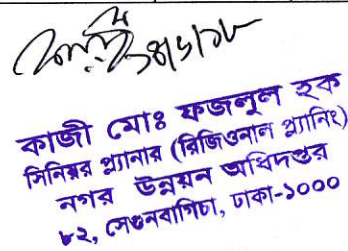 কাজী মোঃ ফজলুল হক
সিনিয়র প্ল্যানার (রিজিওনাল প্ল্যানিং)
নগর উন্নয়ন অধিদপ্তর
৮২, সেগুনবাগিচা, ঢাকা-১০০০